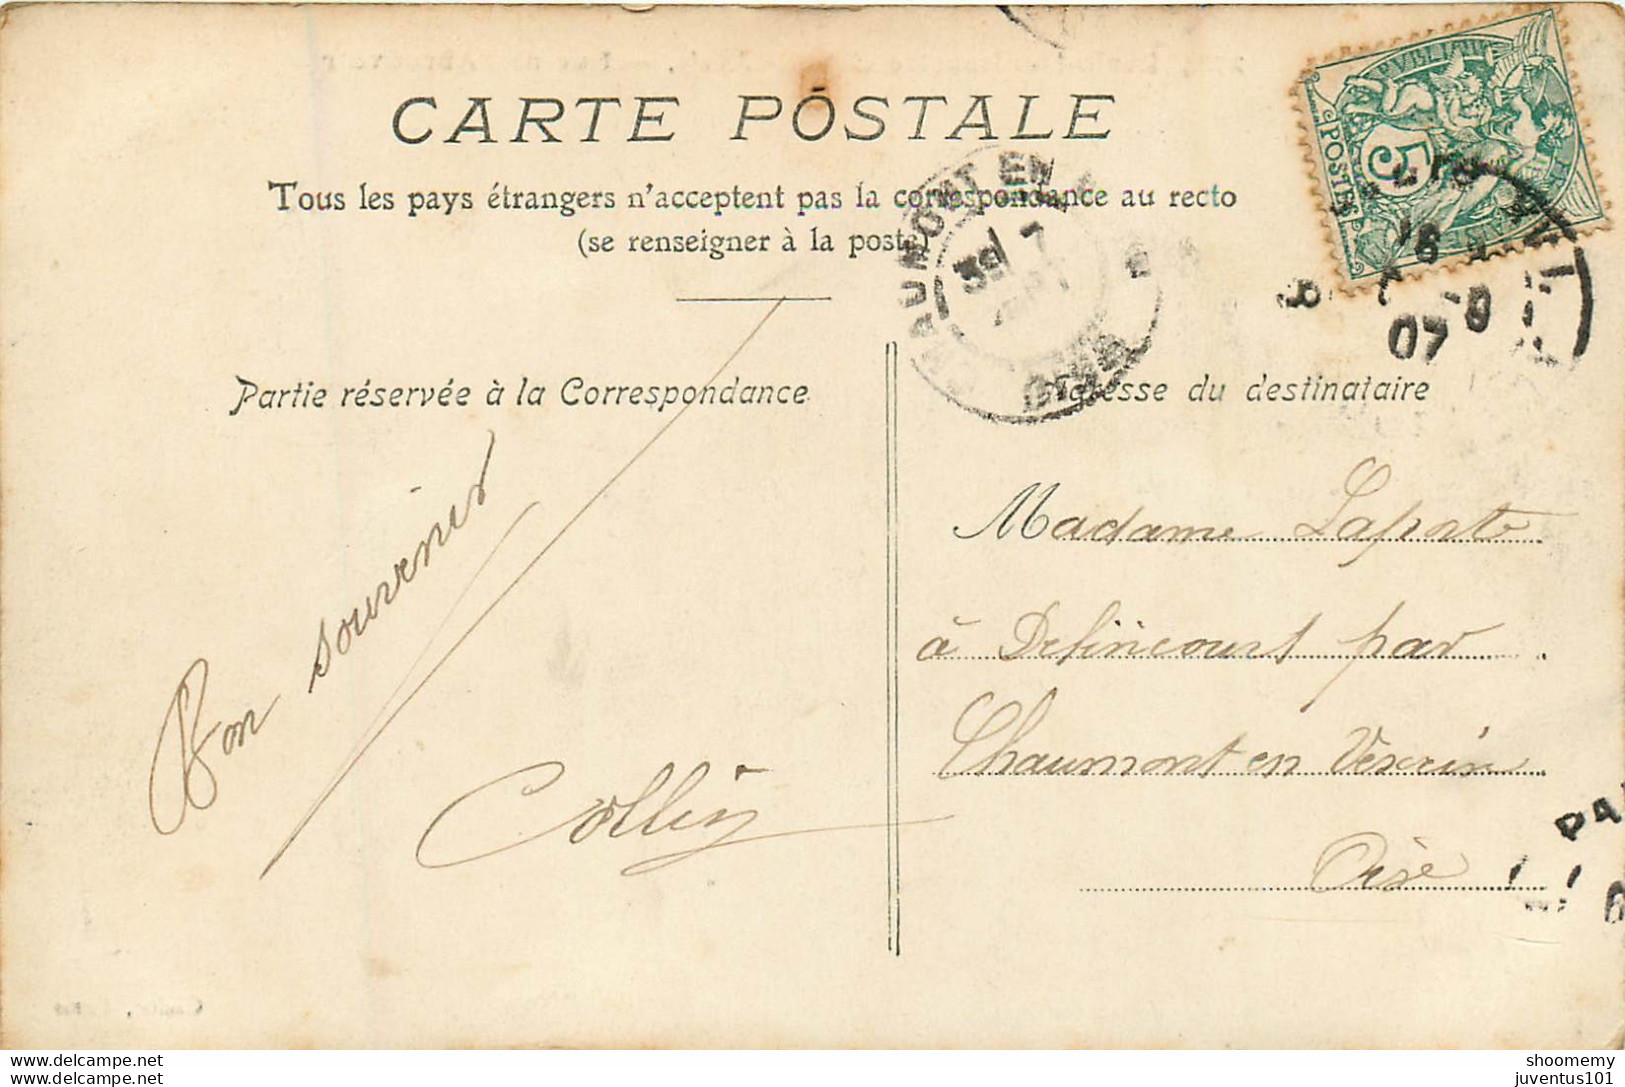 CARTE POSTALE
Tous les pays étrangers n'acceptent pas la correspondance au recto
(se renseigner à la poste)
Partie réservée à la Correspondance
Adresse du destinataire
Bon souvenir
Collin
Madame Laporte
à Delincourt par
Chaumont en Vexin
Oise
POSTES
5
CHAUMONT EN
07
PA
delcampe.net
shoomemy
juventus101